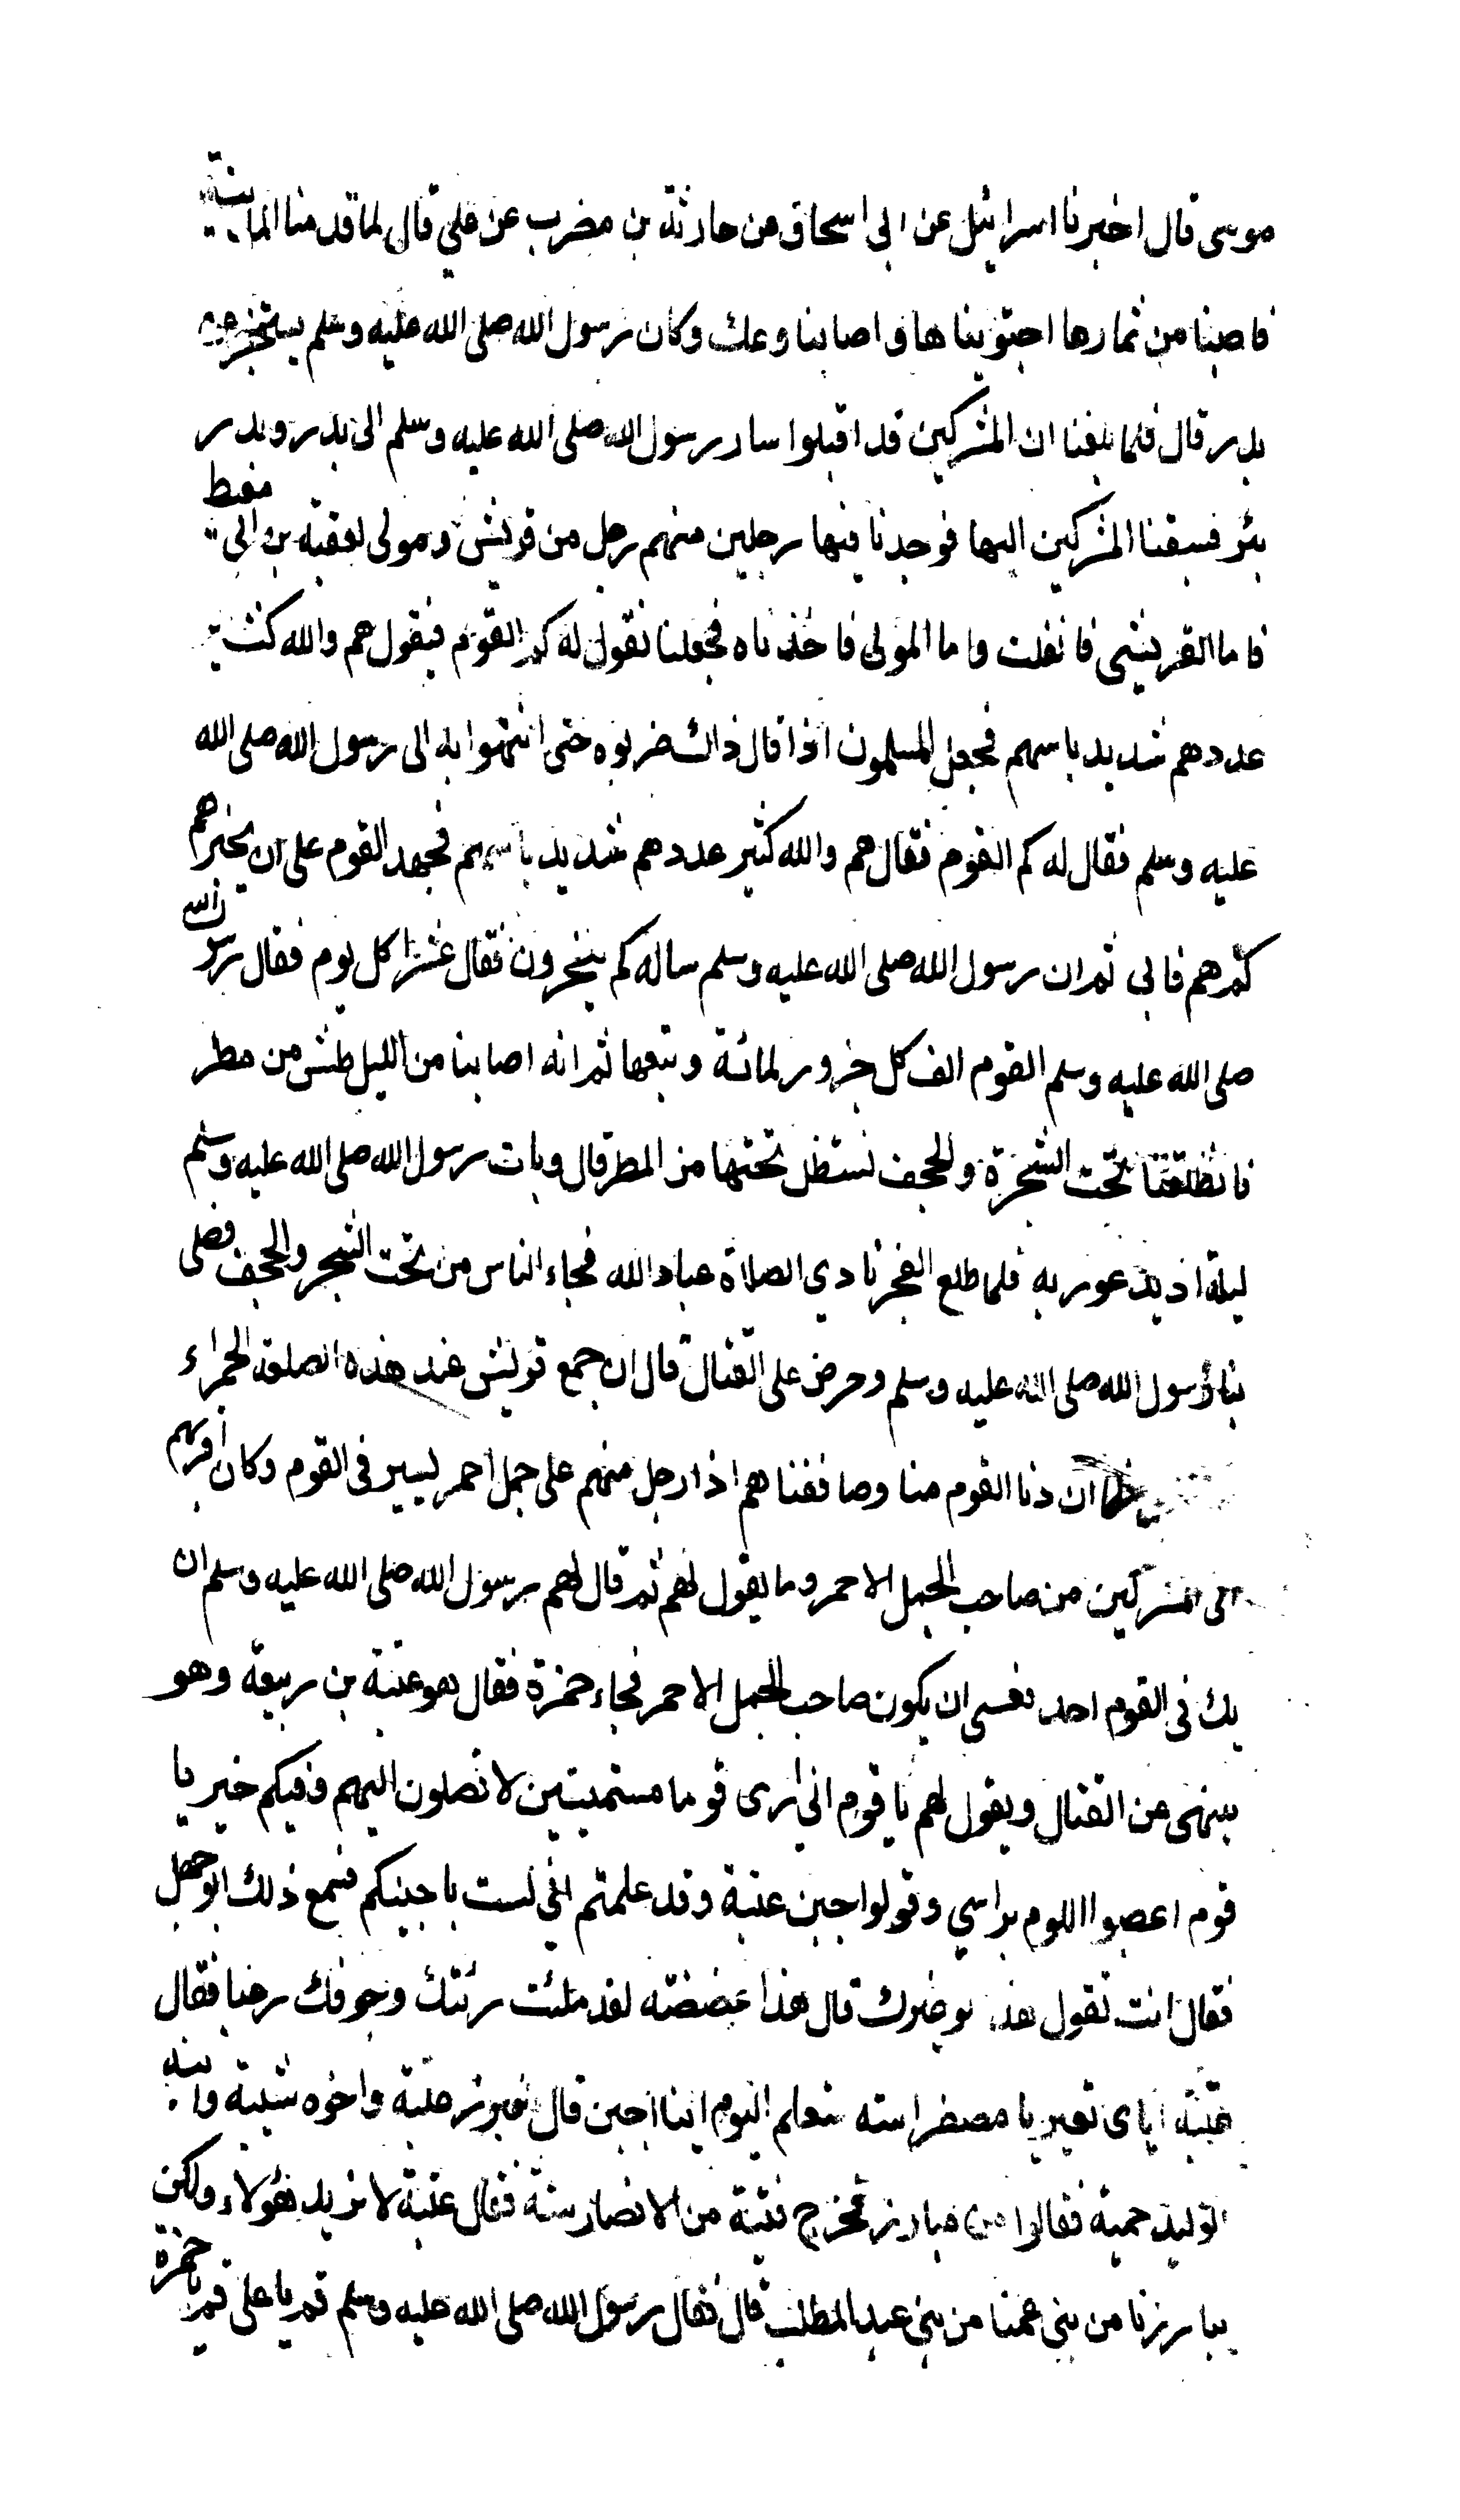 موسى قال اخبرنا اسرائيل عن ابي اسحاق من حارثة بن مضرب عن علي قال لما قدمنا المدينة
فاصبنا من ثمارها اجتويناها واصابنا وعك وكان رسول الله صلى الله عليه وسلم يستخبر عن
بدر قال فلما بلغنا ان المشركين قد اقبلوا سار رسول الله صلى الله عليه وسلم الى بدر وبدر
بئر فسبقنا المشركين اليها فوجدنا فيها رجلين منهم رجل من قريش ومولى لعقبة بن ابي معيط
فاما القريشى فانفلت واما المولى فاخذناه فجعلنا نقول له كم القوم فيقول هم والله كثير
عددهم شديد باسهم فجعل المسلمون اذا قال ذاك ضربوه حتى انتهوا به الى رسول الله صلى الله
عليه وسلم فقال له كم القوم فقال هم والله كثير عددهم شديد باسهم فجهد القوم على ان يخبرهم
كم هم فابى ثم ان رسول الله صلى الله عليه وسلم ساله كم ينحرون فقال عشرا كل يوم فقال رسول الله
صلى الله عليه وسلم القوم الف كل جزور لمائة وتبعها ثم انه اصابنا من الليل طش من مطر
فانطلقنا تحت الشجرة والحجف نستظل تحتها من المطر قال وبات رسول الله صلى الله عليه وسلم
ليلة اذ يدعو ربه فلما طلع الفجر نادي الصلاة عباد الله فجاء الناس من تحت الشجر والحجف فصلى
بنا رسول الله صلى الله عليه وسلم وحرض على القتال قال ان جمع قريش عند هذه الصلعة الحمراء
ان دنا القوم منا وصاففناهم اذا رجل منهم على جمل احمر يسير فى القوم وكان اقربهم
الى المشركين من صاحب الجمل الاحمر وما يقول لهم ثم قال لهم رسول الله صلى الله عليه وسلم ان
يك فى القوم احد نفسى ان يكون صاحب الجمل الاحمر فجاء حمزة فقال هو عتبة بن ربيعة وهو
ينهى عن القتال ويقول لهم يا قوم اني ارى قوما مستميتين لا تصلون اليهم وفيكم خير يا
قوم اعصبوا اللوم براسي وقولوا جبن عتبة وقد علمتم اني لست باجبنكم فسمع ذلك ابو جهل
فقال انت تقول هذا لو غيرك قال هذا عضضته لقد ملئت رئتك وجوفك رعبا فقال
عتبة اياى تعير يا مصفر استه ستعلم اليوم اينا اجبن قال فبرز عتبة واخوه شيبة وابنه
الوليد حمية فقالوا من مبارز فخرج فتية من الانصار ستة فقال عتبة لا نريد هؤلاء ولكن
يبارزنا من بني عمنا من بني عبد المطلب قال فقال رسول الله صلى الله عليه وسلم قم يا على قم يا حمزة